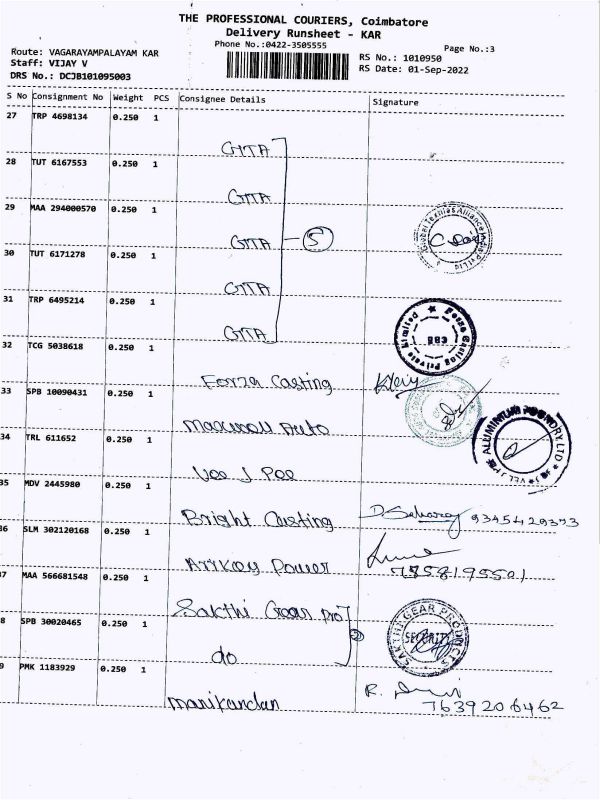 THE PROFESSIONAL COURIERS, Coimbatore
Delivery Runsheet - KAR
Phone No.:0422-3505555
Page No.:3
Route: VAGARAYAMPALAYAM KAR
RS No.: 1010950
Staff: VIJAY V
RS Date: 01-Sep-2022
DRS No.: DCJB101095003
S No Consignment No Weight PCS Consignee Details Signature
27 TRP 4698134 0.250 1
GTTA
28 TUT 6167553 0.250 1
GTTA
29 MAA 294000570 0.250 1
GTTA 5
30 TUT 6171278 0.250 1
GTTA
31 TRP 6495214 0.250 1
GTTA
32 TCG 5038618 0.250 1
Forza Casting
33 SPB 10090431 0.250 1
Auto
34 TRL 611652 0.250 1
Vee J Pee
ALUMINIUM FOUNDRY LTD
35 MDV 2445980 0.250 1
Bright Casting 9345429373
36 SLM 302120168 0.250 1
Power
7858195501
37 MAA 566681548 0.250 1
Sakthi Gear Pro
8 SPB 30020465 0.250 1
2
SAKTHI GEAR PRODUCTS
SECURITY
do
9 PMK 1183929 0.250 1
manikandan
7639206462